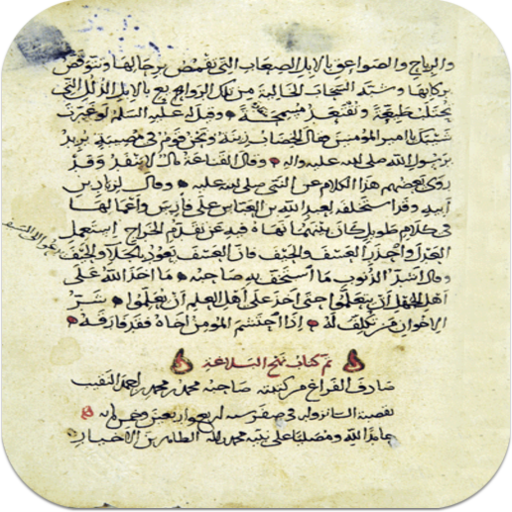 والرياح والصواعق بالإبل الصعاب التي تقمص برحالها وتتوقص
بركبانها وشبه السحاب الخالية من تلك الروائع بالإبل الذلل التي
تحتلب طيعة وتقتعد مسمحة وقيل له عليه السلام لو غيرت
شيبك يا أمير المؤمنين فقال الخضاب زينة ونحن قوم في مصيبة يريد
برسول الله صلى الله عليه وآله وقال القناعة مال لا ينفد وقد
روى بعضهم هذا الكلام عن النبي صلى الله عليه وقال لزياد بن
أبيه وقد استخلفه لعبد الله بن العباس على فارس وأعمالها
في كلام طويل كان بينهما نهاه فيه عن تقديم الخراج استعمل
العدل واحذر العسف والحيف فإن العسف يعود بالجلاء والحيف
يدعو إلى السيف
وقال أشد الذنوب ما استخف به صاحبه ما أخذ الله على
أهل الجهل أن يتعلموا حتى أخذ على أهل العلم أن يعلموا شر
الإخوان من تكلف له إذا احتشم المؤمن أخاه فقد فارقه
تم كتاب نهج البلاغة
صادف الفراغ من كتبته صاحبه محمد بن محمد بن أحمد النقيب
بقصبة السانزوار في صفر سنة أربع وأربعين وخمس مائة
حامدا لله ومصليا على نبيه محمد وآله الطاهرين الأخيار